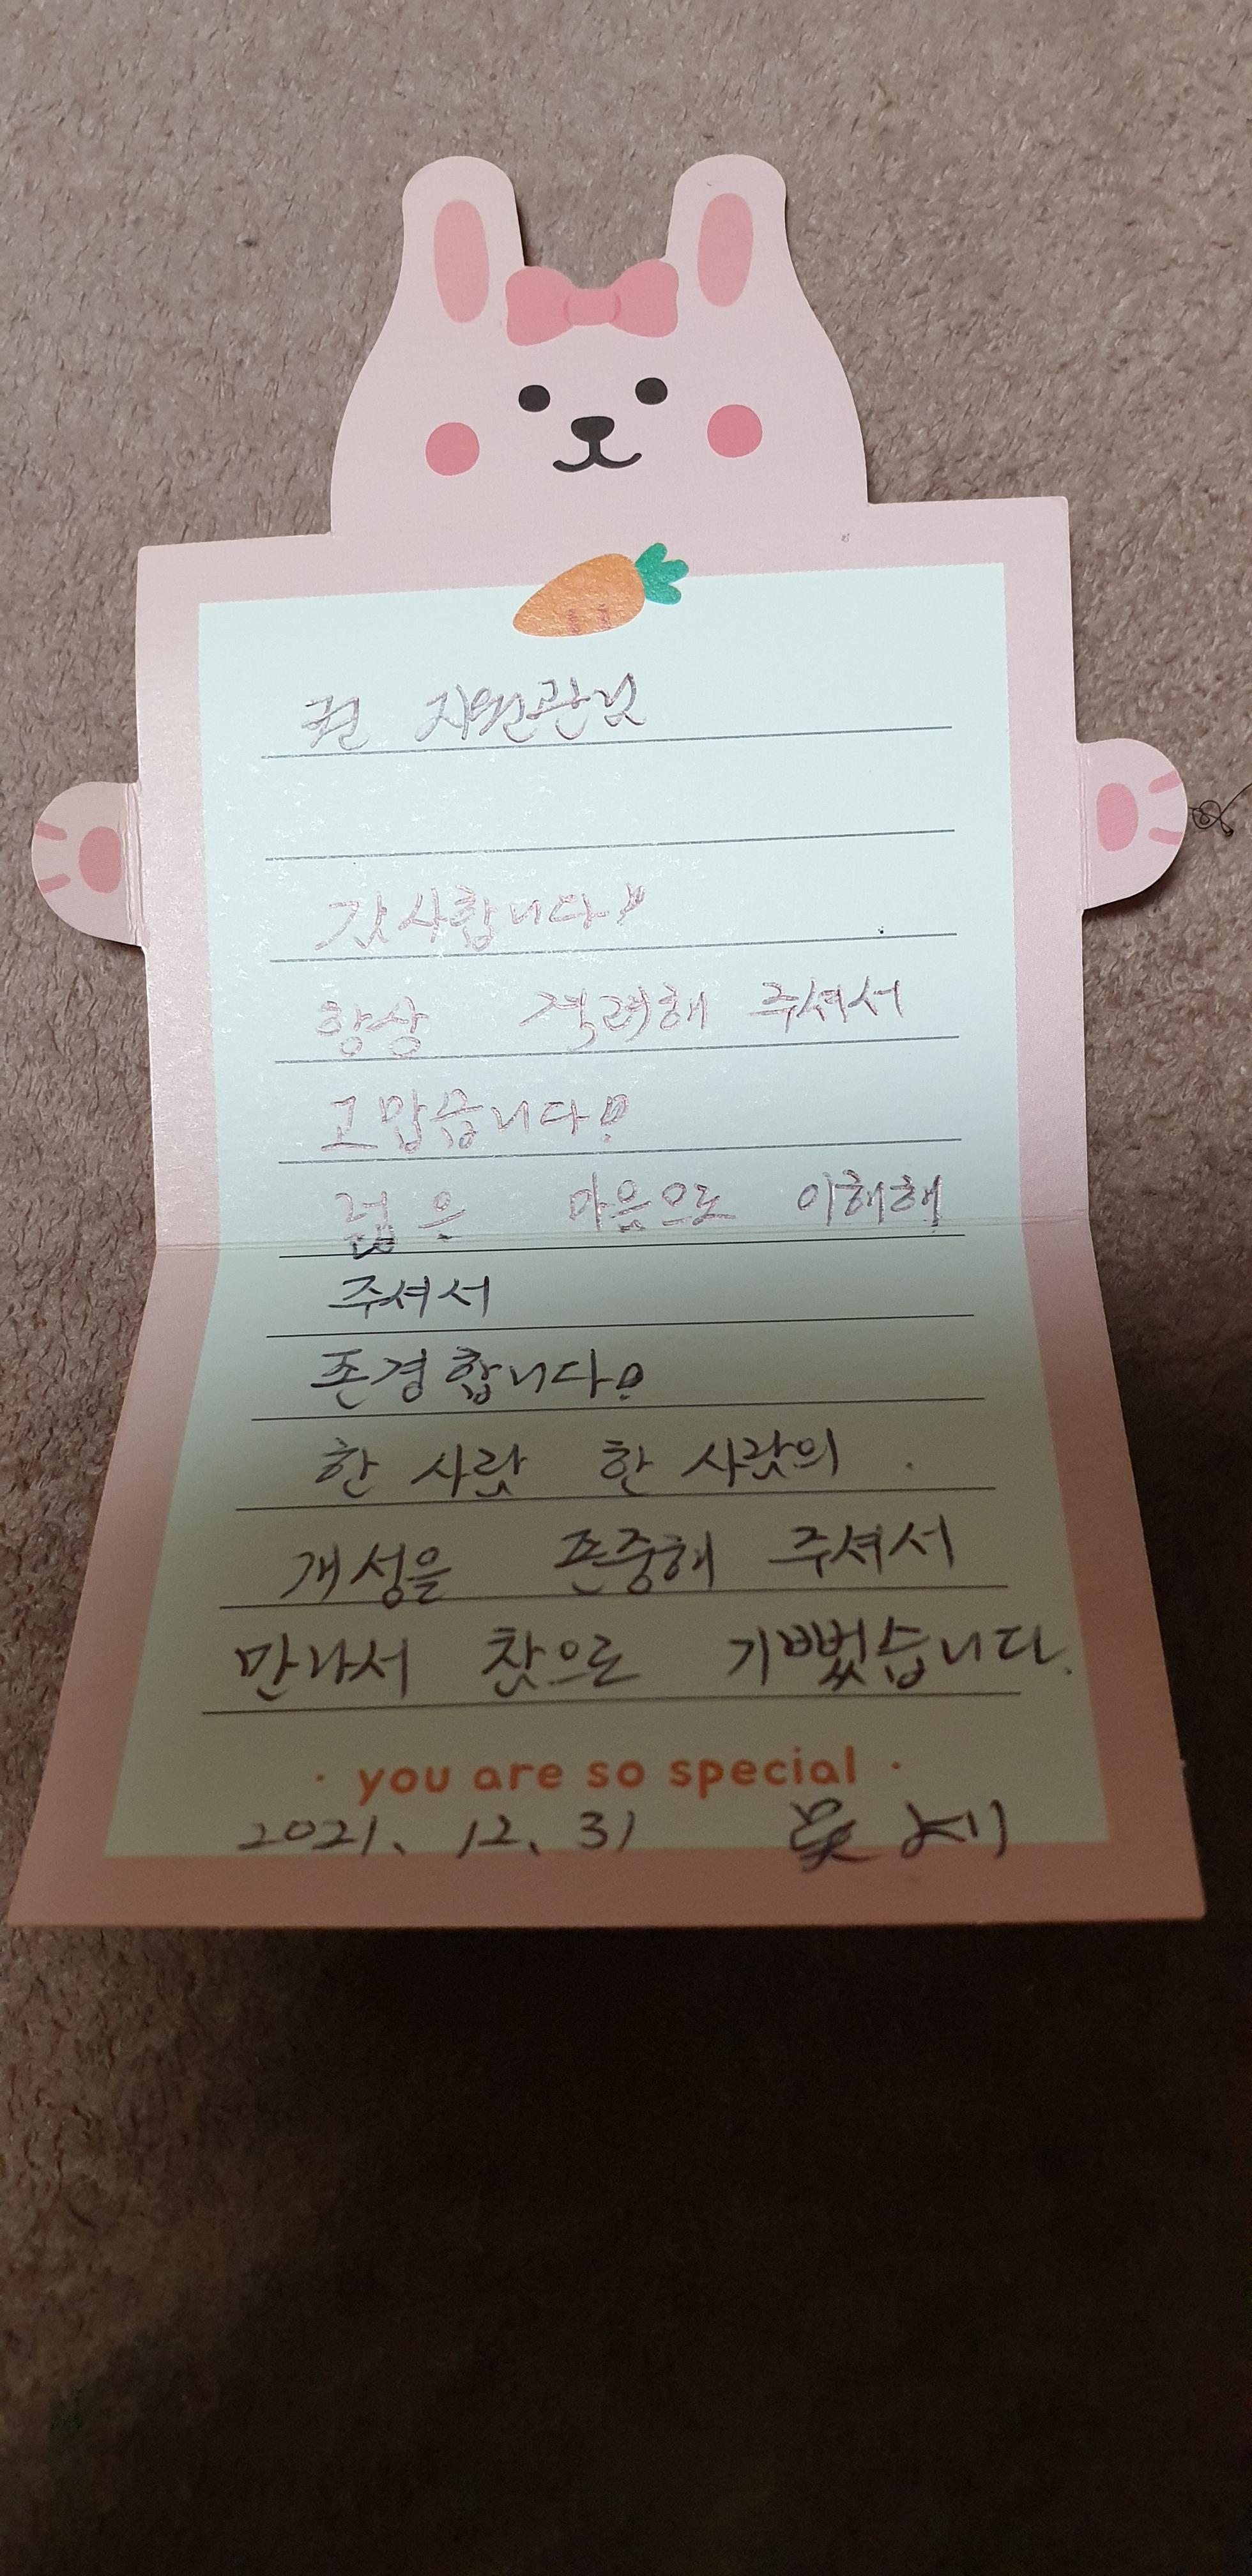 권 지원관님
감사합니다!
항상 격려해 주셔서
고맙습니다!
넓은 마음으로 이해해
주셔서
존경합니다!
한 사람 한 사람의
개성을 존중해 주셔서
만나서 참으로 기뻤습니다.
· you are so special ·
2021. 12. 31